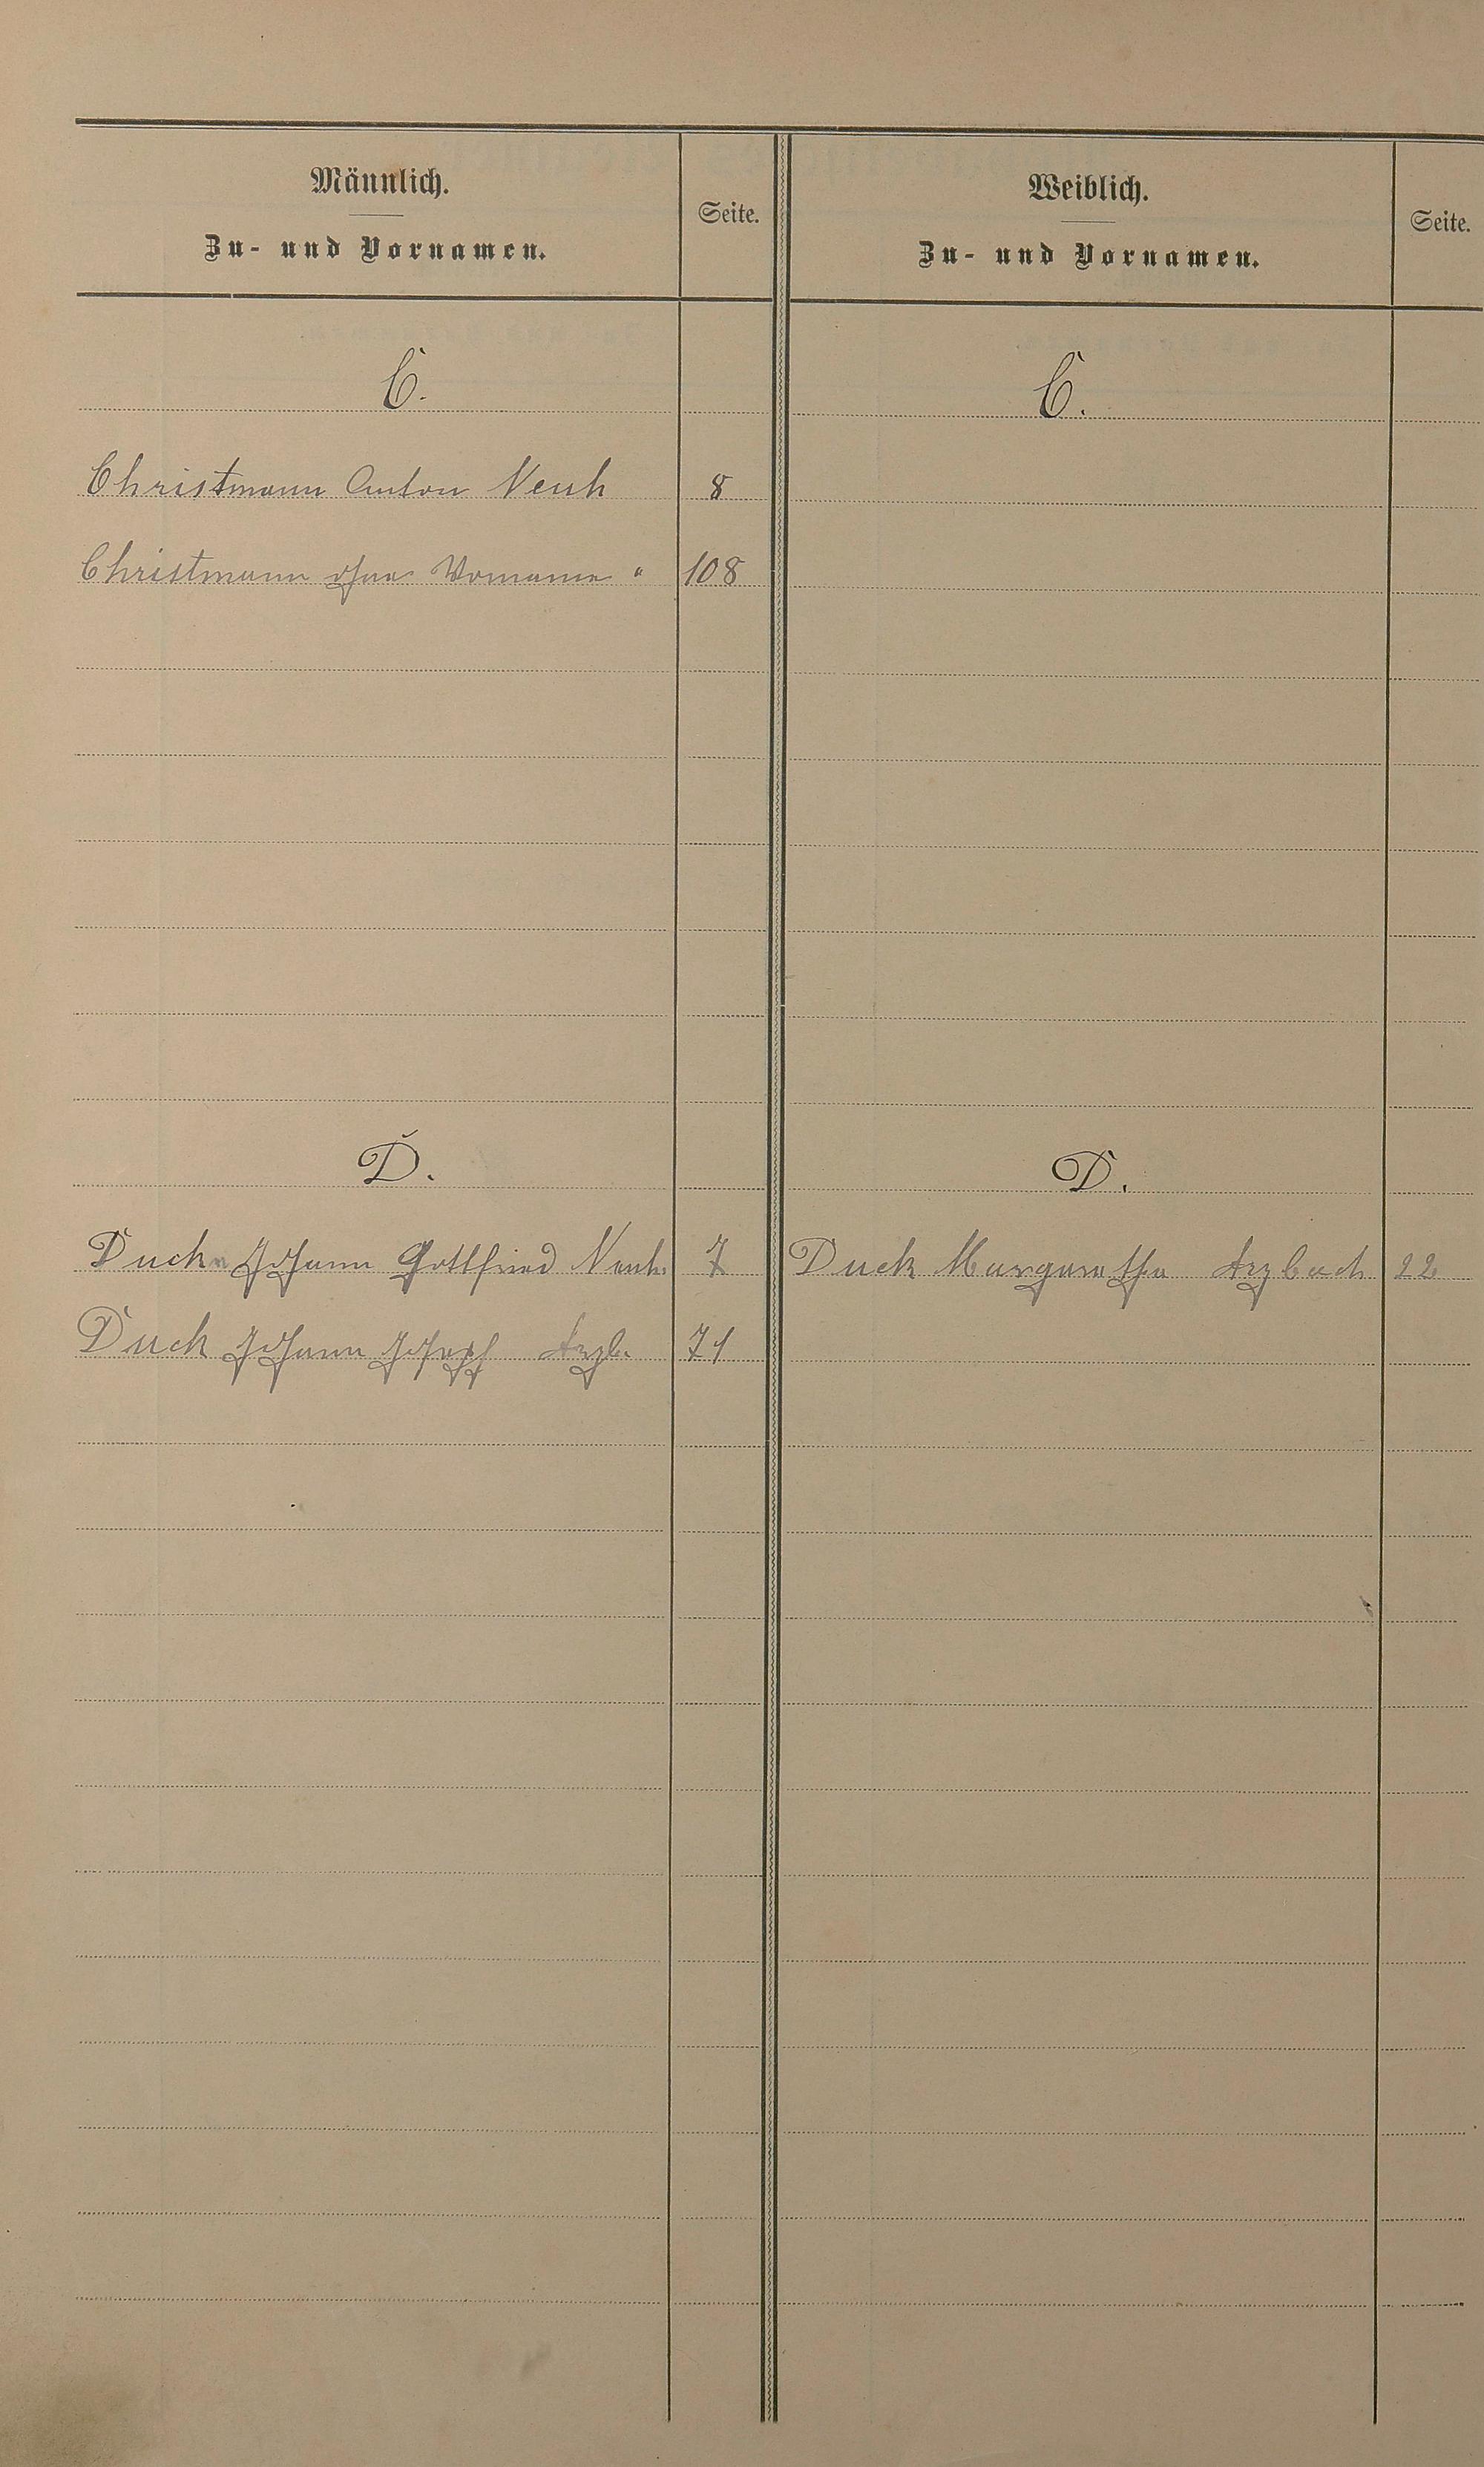 Männlich.
Zu- und Vornamen.
Seite.
Weiblich.
Zu- und Vornamen.
Seite.
C.
C.
Christmann Anton Neuh 8
Christmann ohne Vorname " 108
D.
D.
Duck Johann Gottfried Neuh. 7
Duck Margaretha Arzbach 22
Duck Johann Josef Arzb. 71